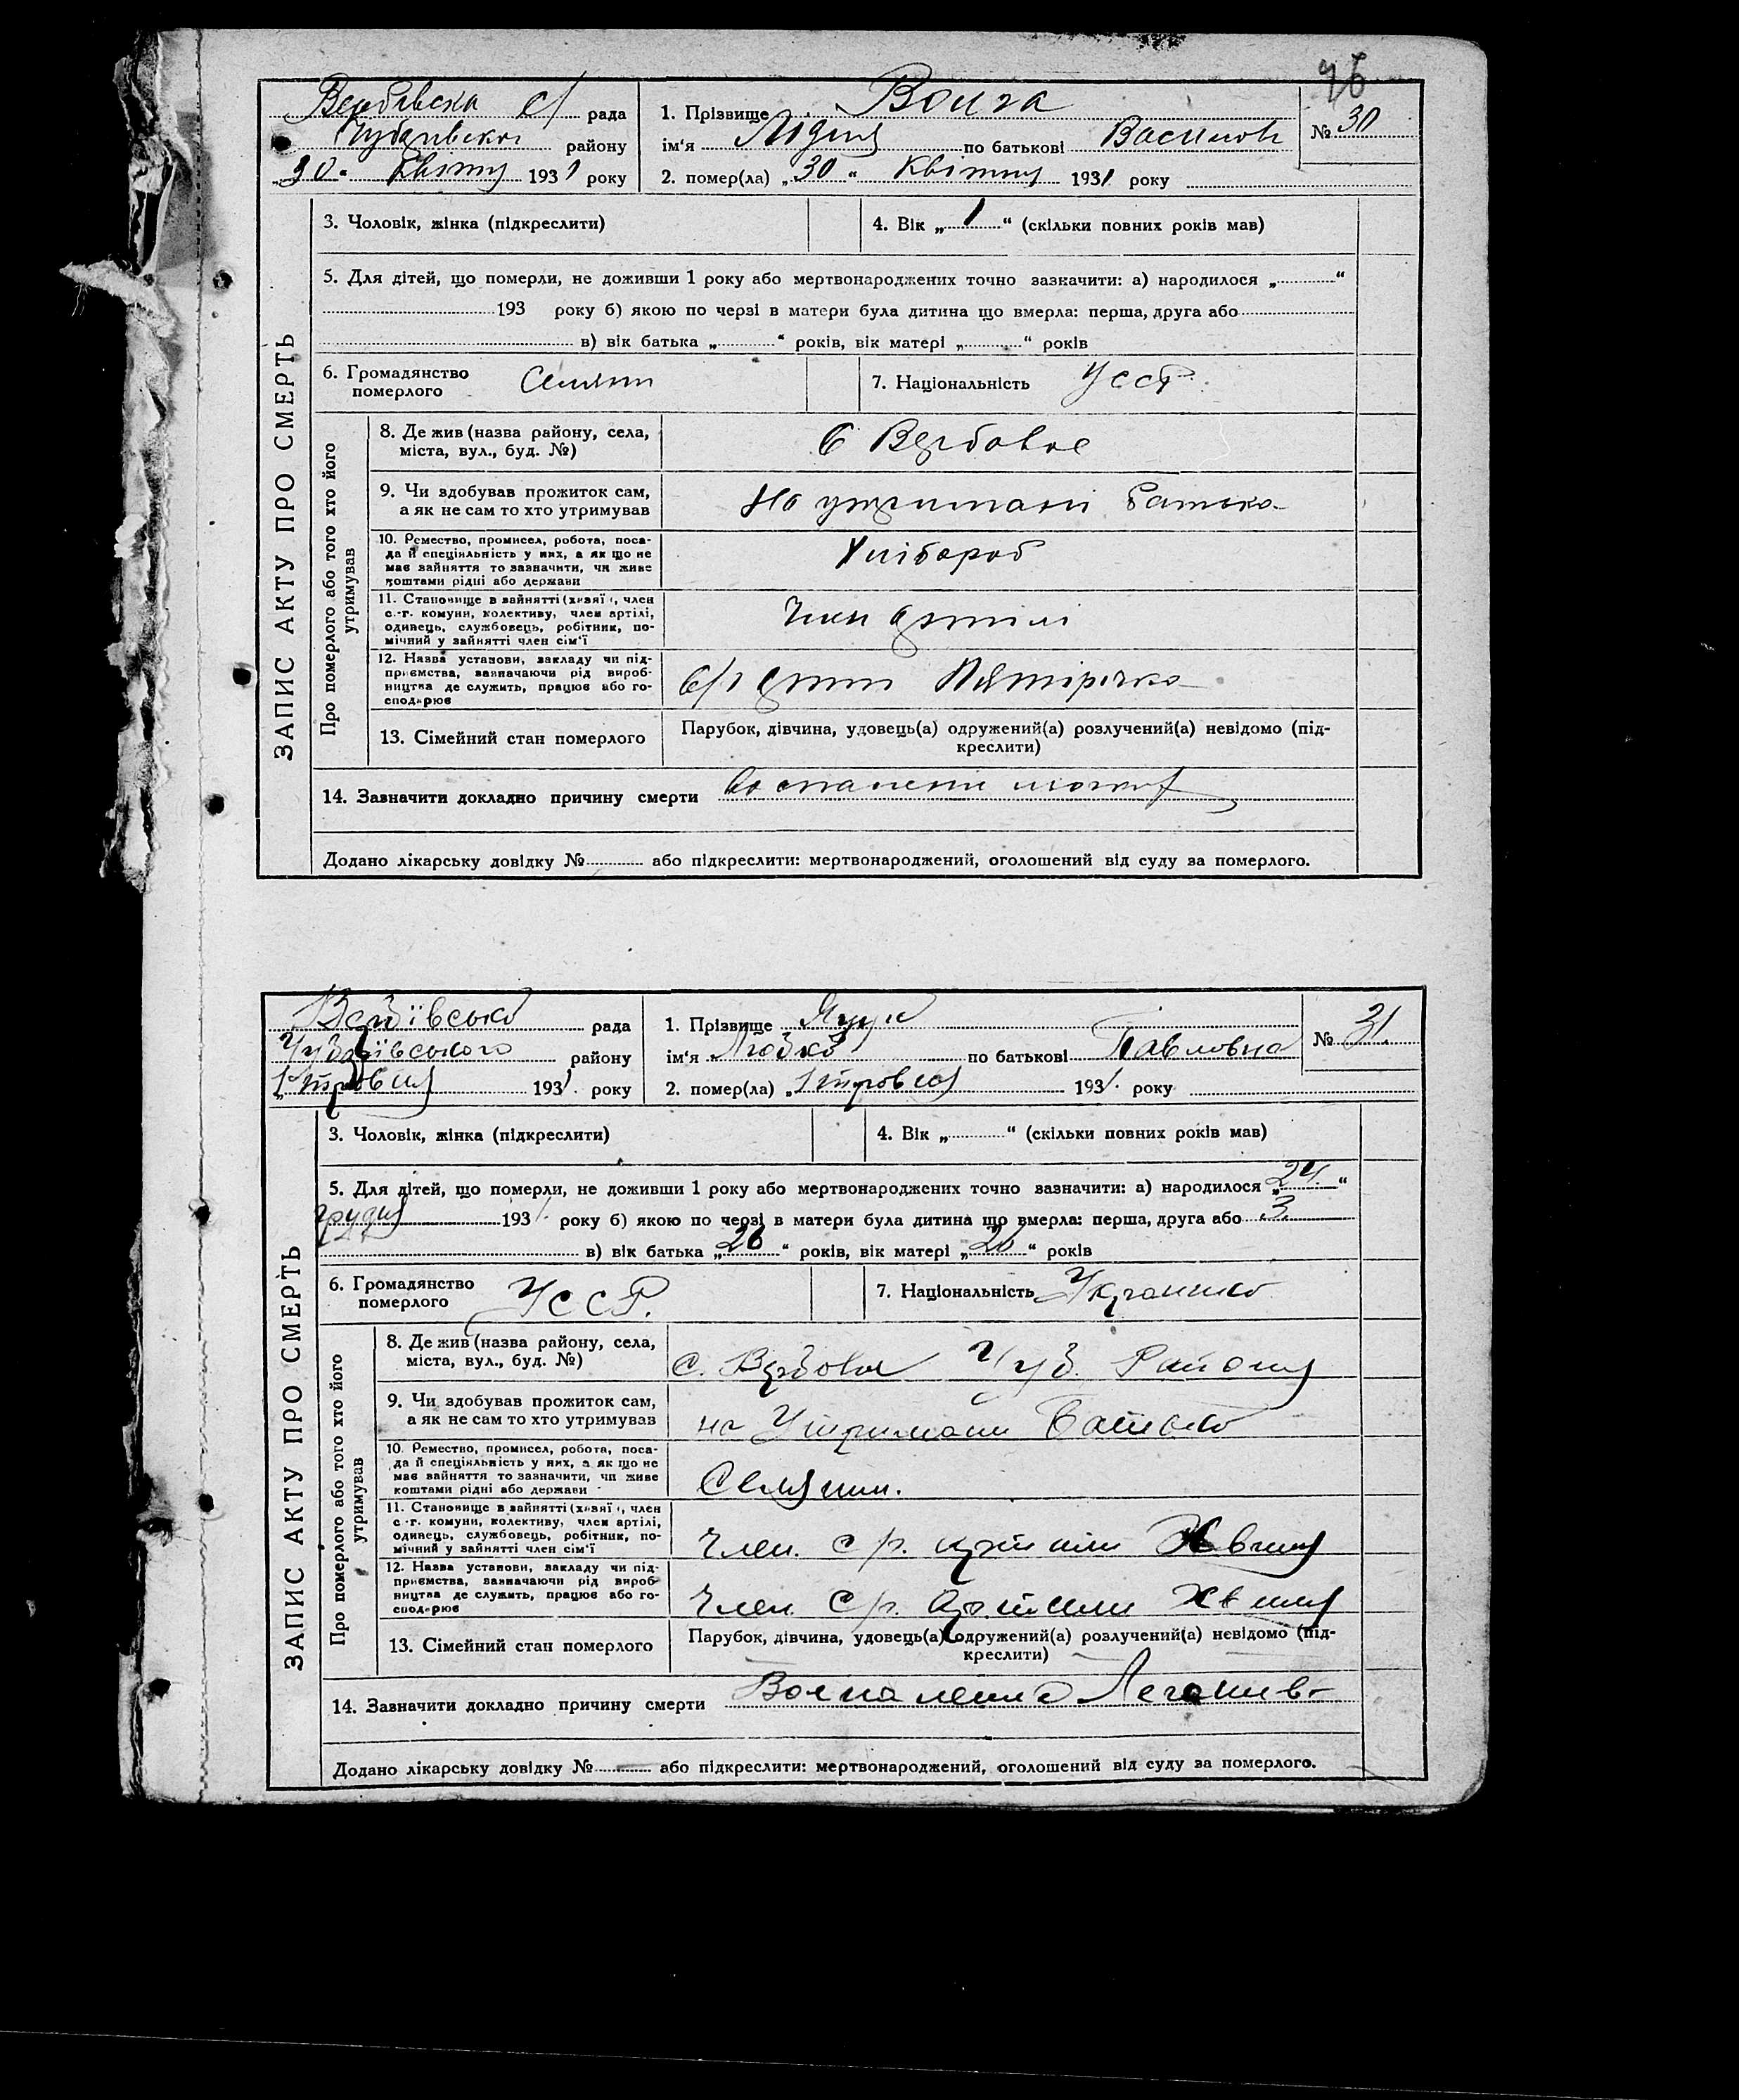 46
Вербівська с/ рада
Чубарівськог району
„30“ квітня 1931 року
1. Прізвище Воміга
ім'я Лідия по батькові Василов
2. помер(ла) „30“ Квітня 1931 року
№ 30
ЗАПИС АКТУ ПРО СМЕРТЬ
3. Чоловік, жінка (підкреслити)
4. Вік „1“ (скільки повних років мав)
5. Для дітей, що померли, не доживши 1 року або мертвонароджених точно зазначити: а) народилося „ “
193 року б) якою по черзі в матери була дитина що вмерла: перша, друга або
в) вік батька „ “ років, вік матері „ “ років
6. Громадянство померлого Селянин
7. Національність УССР
Про померлого або того хто його утримував
8. Де жив (назва району, села,
міста, вул., буд. №)
С Вербовое
9. Чи здобував прожиток сам,
а як не сам то хто утримував
На утримані батька
10. Ремество, промисел, робота, поса-
да й спеціяльність у них, а як що не
має зайняття то зазначити, чи живе
коштами рідні або держави
Хлібороб
11. Становище в зайнятті (хазяї , член
с.-г. комуни, колективу, член артілі,
одинець, службовець, робітник, по-
мічний у зайнятті член сім'ї
Член артілі
12. Назва установи, закладу чи під-
приємства, зазначаючи рід вироб-
ництва де служить, працює або го-
сподарює
с/г артіл Пятірічка
13. Сімейний стан померлого
Парубок, дівчина, удовець(а) одружений(а) розлучений(а) невідомо (під-
креслити)
14. Зазначити докладно причину смерти Воспаленіе
Додано лікарську довідку № або підкреслити: мертвонароджений, оголошений від суду за померлого.
Вербівсько рада
Чубарівського району
„1 травня 1931. року
1. Прізвище
ім'я Любко по батькові Павловна
2. помер(ла) „1 травня 1931. року
№ 31.
ЗАПИС АКТУ ПРО СМЕРТЬ
3. Чоловік, жінка (підкреслити)
4. Вік „ “ (скільки повних років мав)
5. Для дітей, що померли, не доживши 1 року або мертвонароджених точно зазначити: а) народилося „24.“
грудня 193 року б) якою по черзі в матери була дитина що вмерла: перша, друга або 3.
в) вік батька „26“ років, вік матері „26“ років
6. Громадянство померлого УССР.
7. Національність Украинка
Про померлого або того хто його утримував
8. Де жив (назва району, села,
міста, вул., буд. №)
С. Вербове Чуб. Району
9. Чи здобував прожиток сам,
а як не сам то хто утримував
на Утримани Батька
10. Ремество, промисел, робота, поса-
да й спеціяльність у них, а як що не
має зайняття то зазначити, чи живе
коштами рідні або держави
Селянин.
11. Становище в зайнятті (хазяї , член
с.-г. комуни, колективу, член артілі,
одинець, службовець, робітник, по-
мічний у зайнятті член сім'ї
Член. с/г. артили Хвиля
12. Назва установи, закладу чи під-
приємства, зазначаючи рід вироб-
ництва де служить, працює або го-
сподарює
Член. С/г. Артили Хвиля
13. Сімейний стан померлого
Парубок, дівчина, удовець(а) одружений(а) розлучений(а) невідомо (під-
креслити)
14. Зазначити докладно причину смерти Воспаления Легких
Додано лікарську довідку № або підкреслити: мертвонароджений, оголошений від суду за померлого.